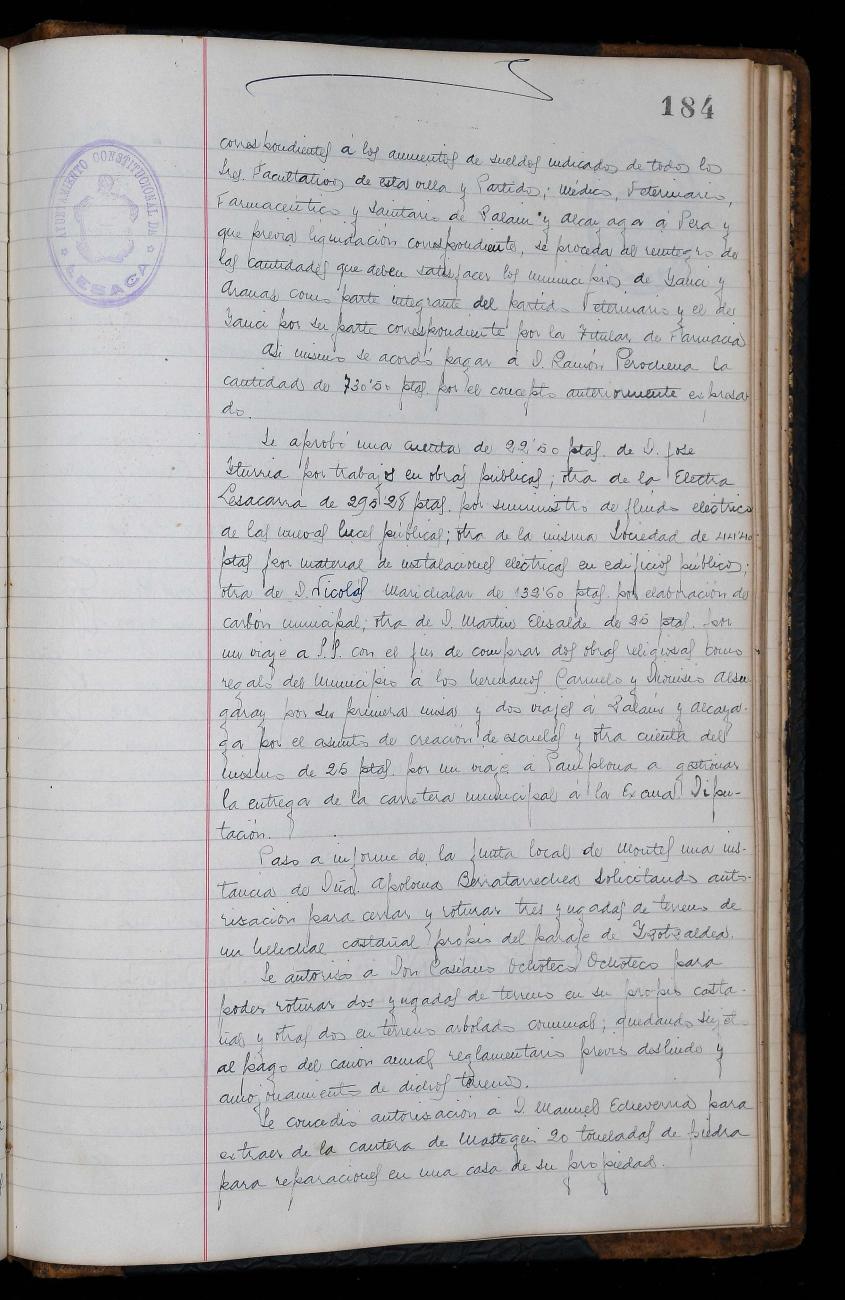 184
AYUNTAMIENTO CONSTITUCIONAL DE
LESACA
correspondientes á los aumentos de sueldos indicados de todos los
Sres. Facultativos de esta villa y Partido; médico, Veterinario,
Farmaceútico y Sanitario de Zalain y Alcayaga á Vera y
que previa liquidación correspondiente, se proceda al reintegro de
las cantidades que deben satisfacer los municipios de Yanci y
Aranaz como parte integrante del partido Veterinario y el de
Yanci por su parte correspondiente por la Titular de Farmacia
Asi mismo se acordó pagar á D. Ramón Perochena la
cantidad de 730'50 ptas. por el concepto anteriormente expresa
do.
Se aprobó una cuenta de 22'50 ptas. de D. Jose
Iturria por trabajos en obras públicas; otra de la Electra
Lesacarra de 295'28 ptas. por suministro de fluido electrico
de las nuevas luces públicas; otra de la misma Sociedad de 44'40
ptas por material de instalaciones electricas en edificios públicos;
otra de D. Nicolás Marichalar de 132'60 ptas. por elaboración de
carbón municipal; otra de D. Martin Elizalde de 25 ptas. por
un viaje a S.S. con el fin de comprar dos obras religiosas como
regalo del Municipio á los hermanos Carmelo y Dionisio Alzu
garay por su primera misa y dos viajes á Zalain y Alcaya-
ga por el asunto de creación de escuelas y otra cuenta del
mismo de 25 ptas. por un viaje a Pamplona a gestionar
la entrega de la carretera municipal á la Excma. Dipu-
tación.
Paso a informe de la Junta local de Montes una ins-
tancia de Dña. Apolonia Berratarrechea solicitando auto-
rización para cerrar y roturar tres yugadas de terreno de
un helechal castañal propio del paraje de
Se autorisó a Don Casiano Ochoteco Ochoteco para
poder roturar dos yugadas de terreno en su propio casta-
ñal y otras dos en terreno arbolado comunal; quedando sujeto
al pago del canon anual reglamentario previo deslinde y
amojonamiento de dichos terrenos.
Se concedió autorización á D. Manuel Echeverria para
extraer de la cantera de Mastegui 20 toneladas de piedra
para reparaciones en una casa de su propiedad.